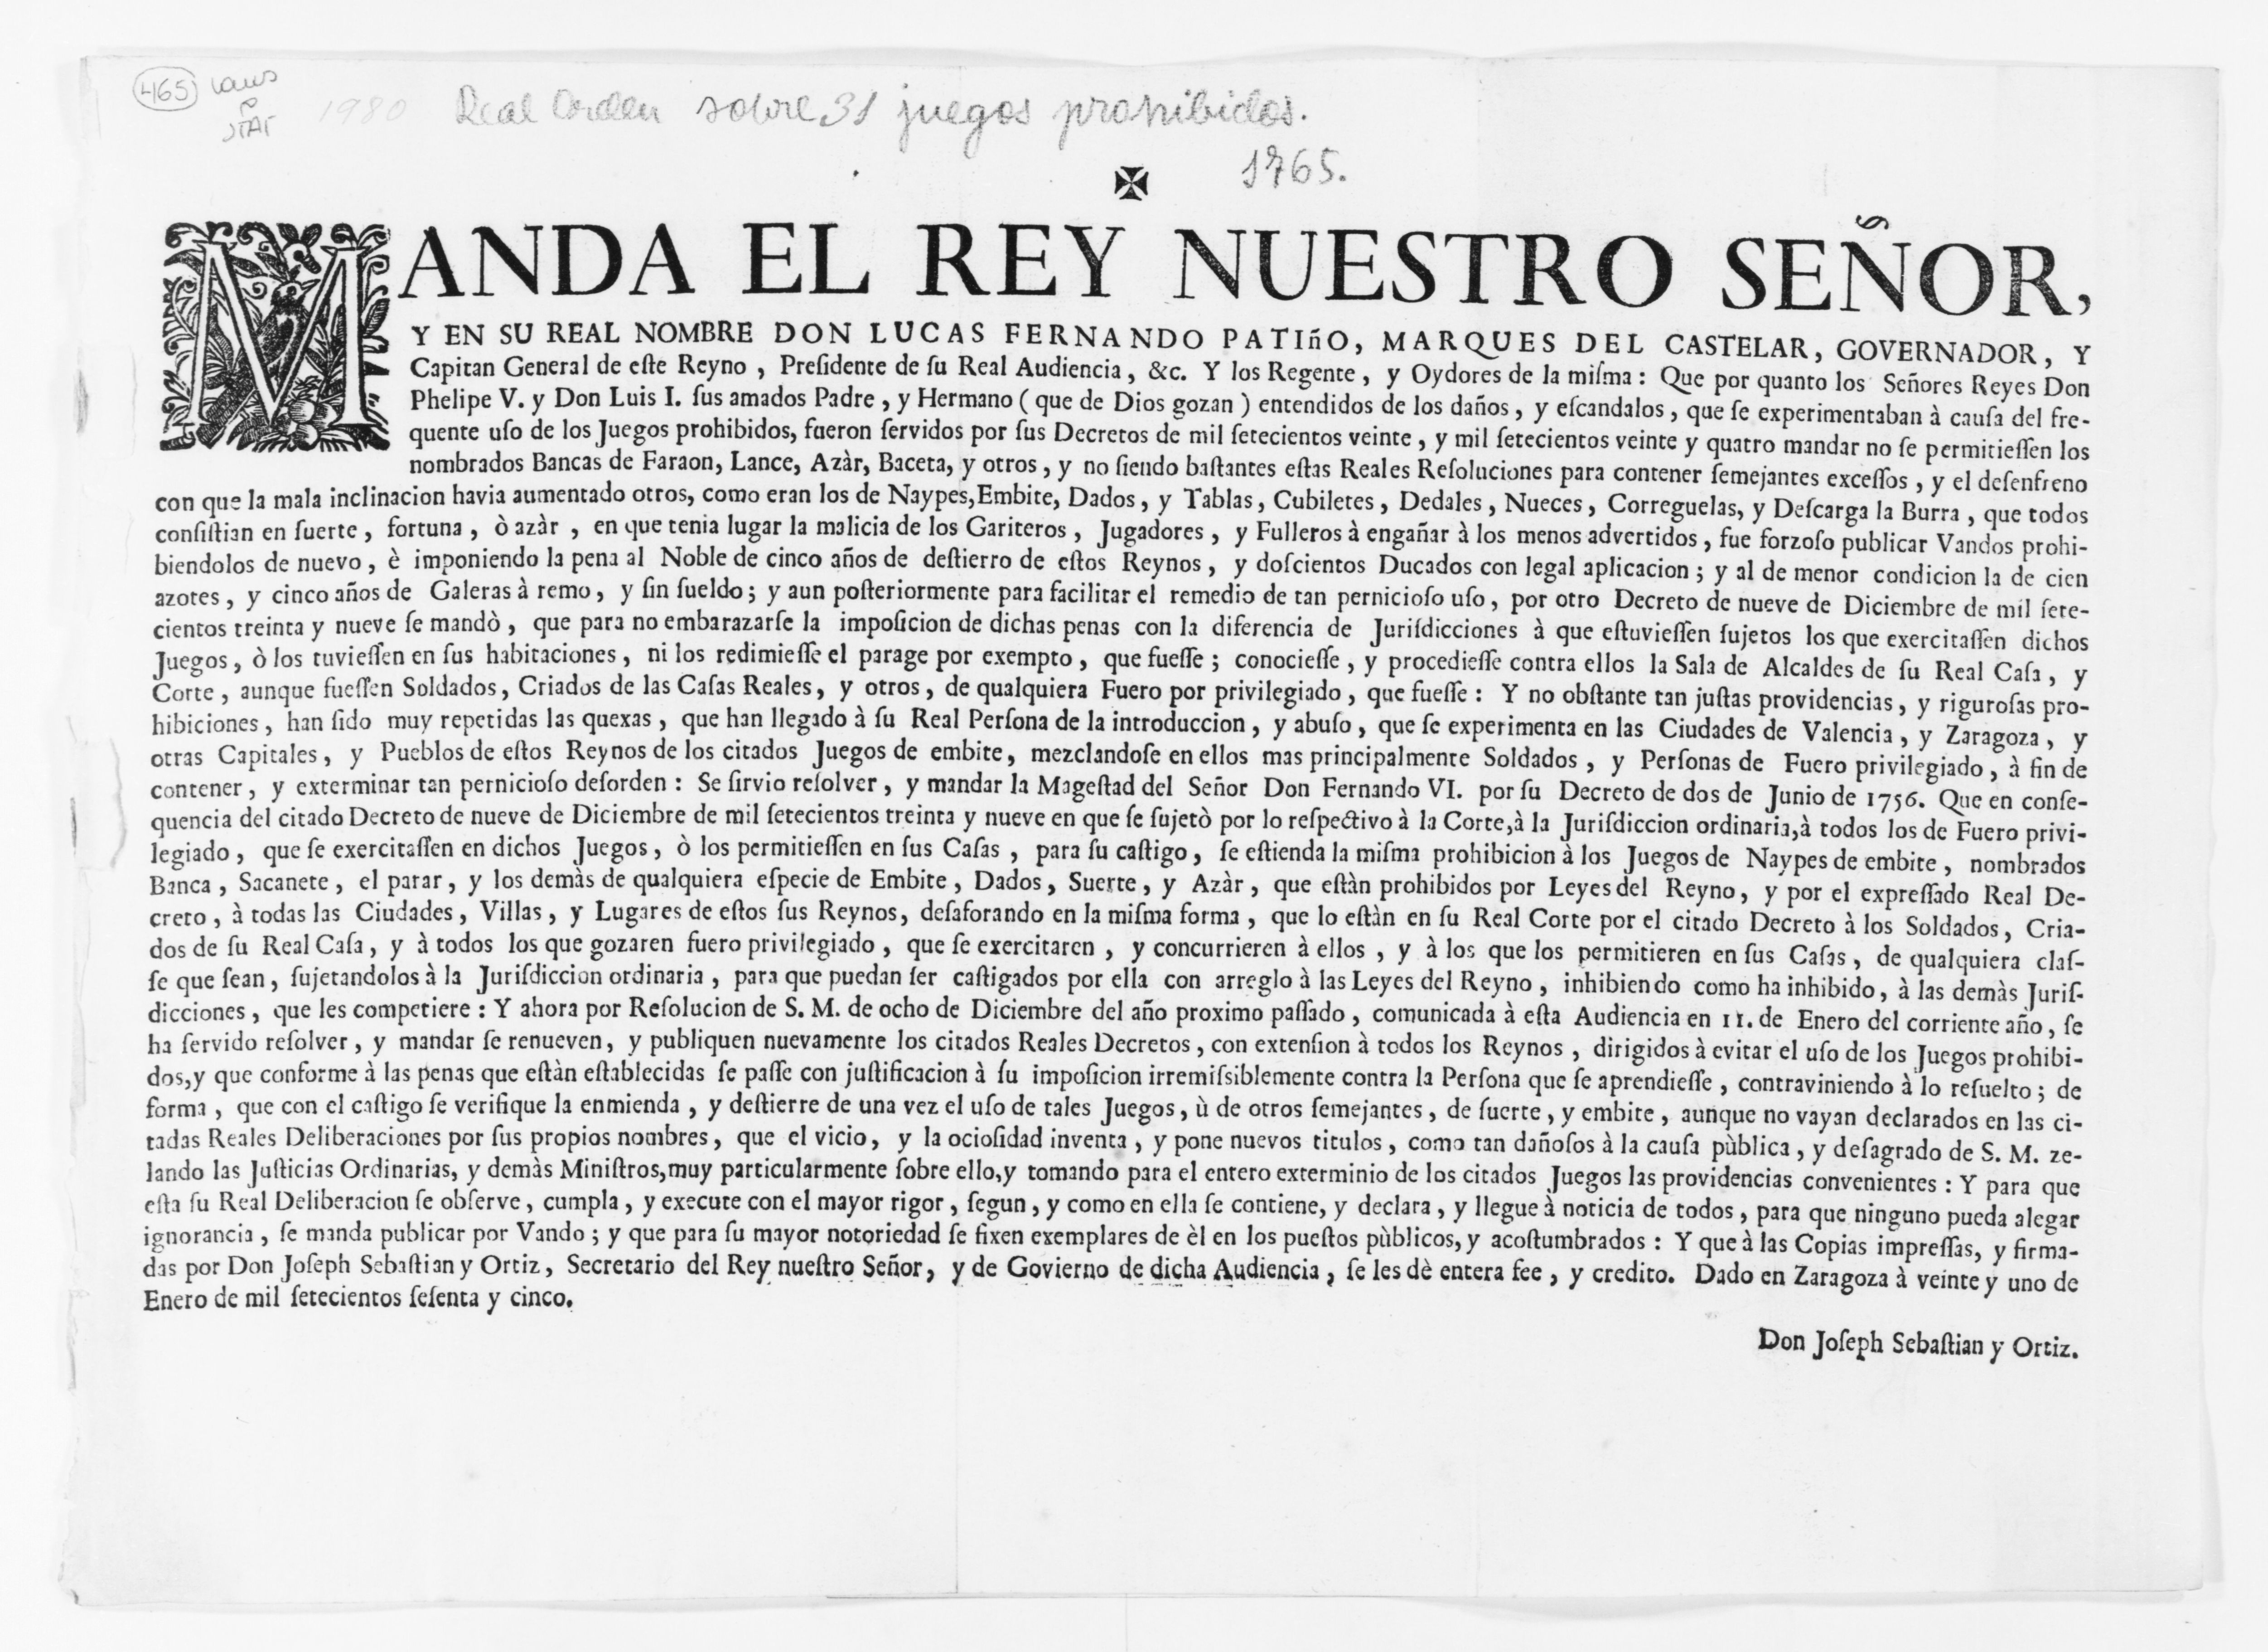 465
1980 Real Orden sobre 31 juegos prohibidos.
1765.
MANDA EL REY NUESTRO SEÑOR,
Y EN SU REAL NOMBRE DON LUCAS FERNANDO PATIñO, MARQUES DEL CASTELAR, GOVERNADOR, Y
Capitan General de eſte Reyno, Preſidente de ſu Real Audiencia, &c. Y los Regente, y Oydores de la miſma: Que por quanto los Señores Reyes Don
Phelipe V. y Don Luis I. ſus amados Padre, y Hermano (que de Dios gozan) entendidos de los daños, y eſcandalos, que ſe experimentaban à cauſa del fre-
quente uſo de los Juegos prohibidos, fueron ſervidos por ſus Decretos de mil ſetecientos veinte, y mil ſetecientos veinte y quatro mandar no ſe permitieſſen los
nombrados Bancas de Faraon, Lance, Azàr, Baceta, y otros, y no ſiendo baſtantes eſtas Reales Reſoluciones para contener ſemejantes exceſſos, y el deſenfreno
con que la mala inclinacion havia aumentado otros, como eran los de Naypes, Embite, Dados, y Tablas, Cubiletes, Dedales, Nueces, Correguelas, y Deſcarga la Burra, que todos
conſiſtian en ſuerte, fortuna, ò azàr, en que tenia lugar la malicia de los Gariteros, Jugadores, y Fulleros à engañar à los menos advertidos, fue forzoſo publicar Vandos prohi-
biendolos de nuevo, è imponiendo la pena al Noble de cinco años de deſtierro de eſtos Reynos, y doſcientos Ducados con legal aplicacion; y al de menor condicion la de cien
azotes, y cinco años de Galeras à remo, y ſin ſueldo; y aun poſteriormente para facilitar el remedio de tan pernicioſo uſo, por otro Decreto de nueve de Diciembre de mil ſete-
cientos treinta y nueve ſe mandò, que para no embarazarſe la impoſicion de dichas penas con la diferencia de Juriſdicciones à que eſtuvieſſen ſujetos los que exercitaſſen dichos
Juegos, ò los tuvieſſen en ſus habitaciones, ni los redimieſſe el parage por exempto, que fueſſe; conocieſſe, y procedieſſe contra ellos la Sala de Alcaldes de ſu Real Caſa, y
Corte, aunque fueſſen Soldados, Criados de las Caſas Reales, y otros, de qualquiera Fuero por privilegiado, que fueſſe: Y no obſtante tan juſtas providencias, y riguroſas pro-
hibiciones, han ſido muy repetidas las quexas, que han llegado à ſu Real Perſona de la introduccion, y abuſo, que ſe experimenta en las Ciudades de Valencia, y Zaragoza, y
otras Capitales, y Pueblos de eſtos Reynos de los citados Juegos de embite, mezclandoſe en ellos mas principalmente Soldados, y Perſonas de Fuero privilegiado, à fin de
contener, y exterminar tan pernicioſo deſorden: Se ſirvio reſolver, y mandar la Mageſtad del Señor Don Fernando VI. por ſu Decreto de dos de Junio de 1756. Que en conſe-
quencia del citado Decreto de nueve de Diciembre de mil ſetecientos treinta y nueve en que ſe ſujetò por lo reſpectivo à la Corte, à la Juriſdiccion ordinaria, à todos los de Fuero privi-
legiado, que ſe exercitaſſen en dichos Juegos, ò los permitieſſen en ſus Caſas, para ſu caſtigo, ſe eſtienda la miſma prohibicion à los Juegos de Naypes de embite, nombrados
Banca, Sacanete, el parar, y los demàs de qualquiera eſpecie de Embite, Dados, Suerte, y Azàr, que eſtàn prohibidos por Leyes del Reyno, y por el expreſſado Real De-
creto, à todas las Ciudades, Villas, y Lugares de eſtos ſus Reynos, deſaforando en la miſma forma, que lo eſtàn en ſu Real Corte por el citado Decreto à los Soldados, Cria-
dos de ſu Real Caſa, y à todos los que gozaren fuero privilegiado, que ſe exercitaren, y concurrieren à ellos, y à los que los permitieren en ſus Caſas, de qualquiera claſ-
ſe que ſean, ſujetandolos à la Juriſdiccion ordinaria, para que puedan ſer caſtigados por ella con arreglo à las Leyes del Reyno, inhibiendo como ha inhibido, à las demàs Juriſ-
dicciones, que les competiere: Y ahora por Reſolucion de S. M. de ocho de Diciembre del año proximo paſſado, comunicada à eſta Audiencia en 11. de Enero del corriente año, ſe
ha ſervido reſolver, y mandar ſe renueven, y publiquen nuevamente los citados Reales Decretos, con extenſion à todos los Reynos, dirigidos à evitar el uſo de los Juegos prohibi-
dos, y que conforme à las penas que eſtàn eſtablecidas ſe paſſe con juſtificacion à ſu impoſicion irremiſsiblemente contra la Perſona que ſe aprendieſſe, contraviniendo à lo reſuelto; de
forma, que con el caſtigo ſe verifique la enmienda, y deſtierre de una vez el uſo de tales Juegos, ù de otros ſemejantes, de ſuerte, y embite, aunque no vayan declarados en las ci-
tadas Reales Deliberaciones por ſus propios nombres, que el vicio, y la ocioſidad inventa, y pone nuevos titulos, como tan dañoſos à la cauſa pùblica, y deſagrado de S. M. ze-
lando las Juſticias Ordinarias, y demàs Miniſtros, muy particularmente ſobre ello, y tomando para el entero exterminio de los citados Juegos las providencias convenientes: Y para que
eſta ſu Real Deliberacion ſe obſerve, cumpla, y execute con el mayor rigor, ſegun, y como en ella ſe contiene, y declara, y llegue à noticia de todos, para que ninguno pueda alegar
ignorancia, ſe manda publicar por Vando; y que para ſu mayor notoriedad ſe fixen exemplares de èl en los pueſtos pùblicos, y acoſtumbrados: Y que à las Copias impreſſas, y firma-
das por Don Joſeph Sebaſtian y Ortiz, Secretario del Rey nueſtro Señor, y de Govierno de dicha Audiencia, ſe les dè entera fee, y credito. Dado en Zaragoza à veinte y uno de
Enero de mil ſetecientos ſeſenta y cinco.
Don Joſeph Sebaſtian y Ortiz.